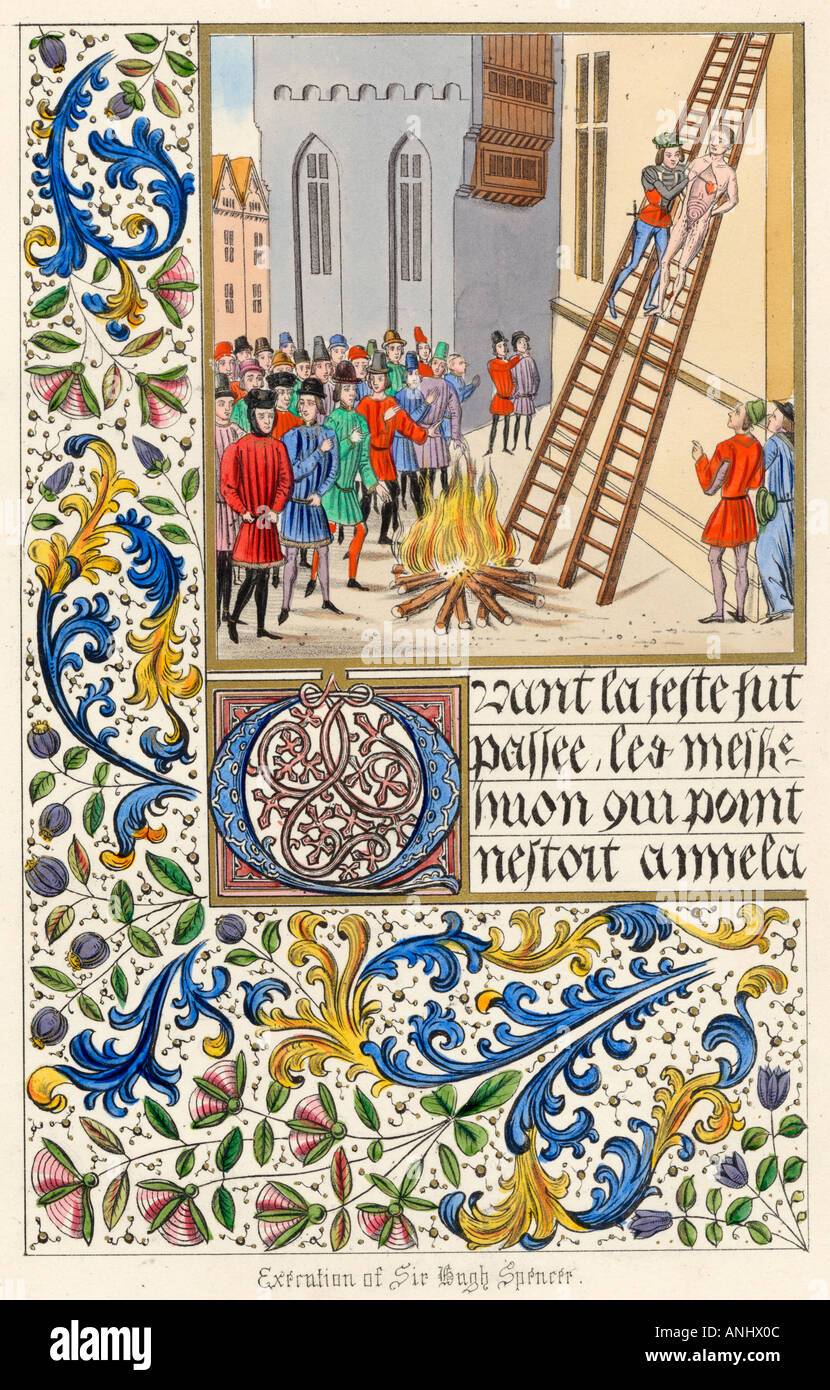 Quant la feste fut
passee, les mess^e
huon qui point
nestoit aimela
Execution of Sir Hugh Spencer.
alamy
Image ID: ANHX0C
www.alamy.com